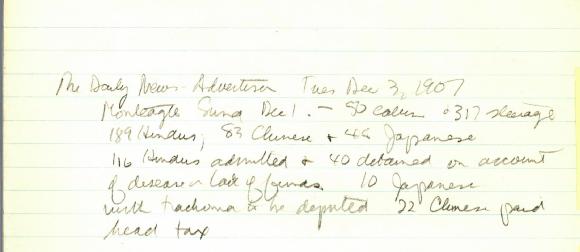 The Daily News-Advertiser Tues Dec 3, 1907
Monteagle Sund Dec 1. – 50 cabin & 317 steerage
189 Hindus, 83 Chinese + 45 Japanese
116 Hindus admitted & 40 detained on account
of disease or lack of funds. 10 Japanese
with trachoma to be deported 22 Chinese paid
head tax